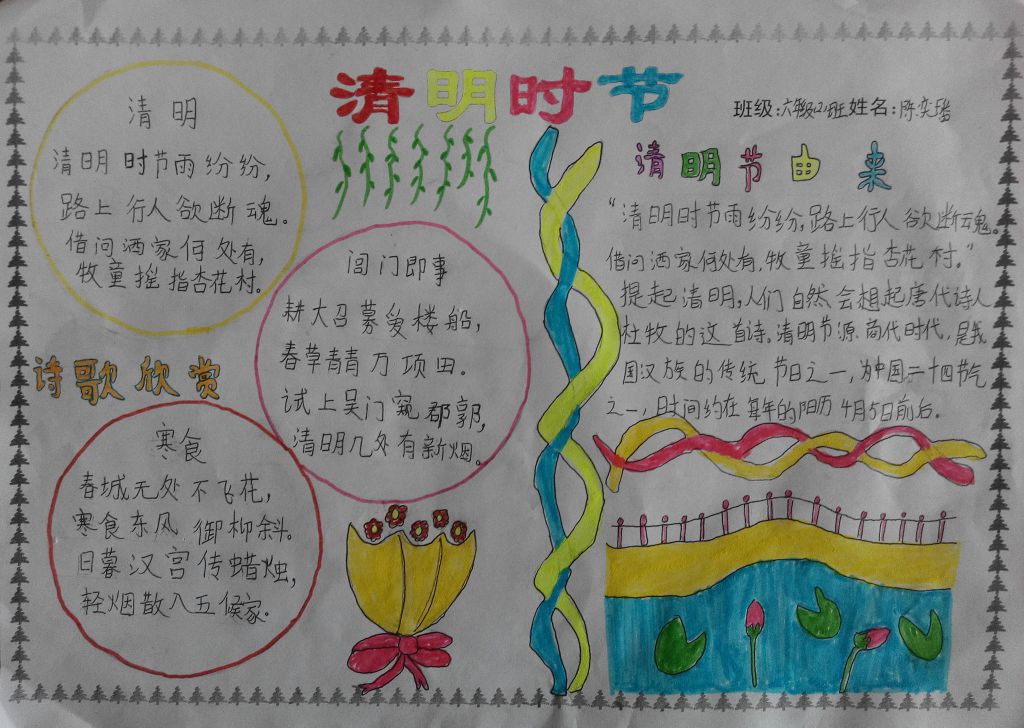 清明时节
班级:六年级(2)班姓名:陈奕
清 明
清明时节雨纷纷,
路上行人欲断魂。
借问酒家何处有,
牧童摇指杏花村。
诗歌欣赏
闾门即事
耕大召募爱楼船,
春草青青万项田。
试上吴门窥郡郭,
清明几处有新烟。
寒食
春城无处不飞花,
寒食东风御柳斜。
日暮汉宫传蜡烛,
轻烟散入五候家。
清明节由来
“清明时节雨纷纷,路上行人欲断魂。
借问酒家何处有,牧童摇指杏花村。”
提起清明,人们自然会想起唐代诗人
杜牧的这首诗。清明节源商代时代,是我
国汉族的传统节日之一,为中国二十四节气
之一,时间约在每年的阳历4月5日前后。